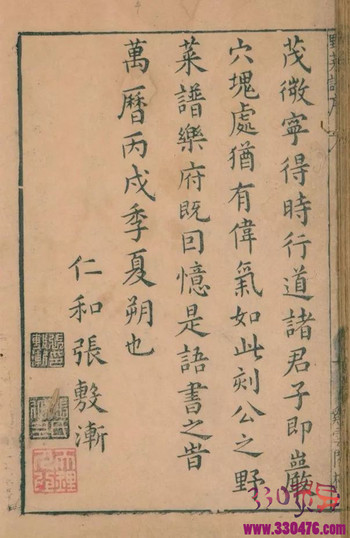 茂微寧得時行道諸君子即巖
穴塊處猶有偉氣如此刻公之野
菜譜樂府既回憶是語書之昔
萬曆丙戌季夏朔也
仁和張敷漸
330476
www.330476.com